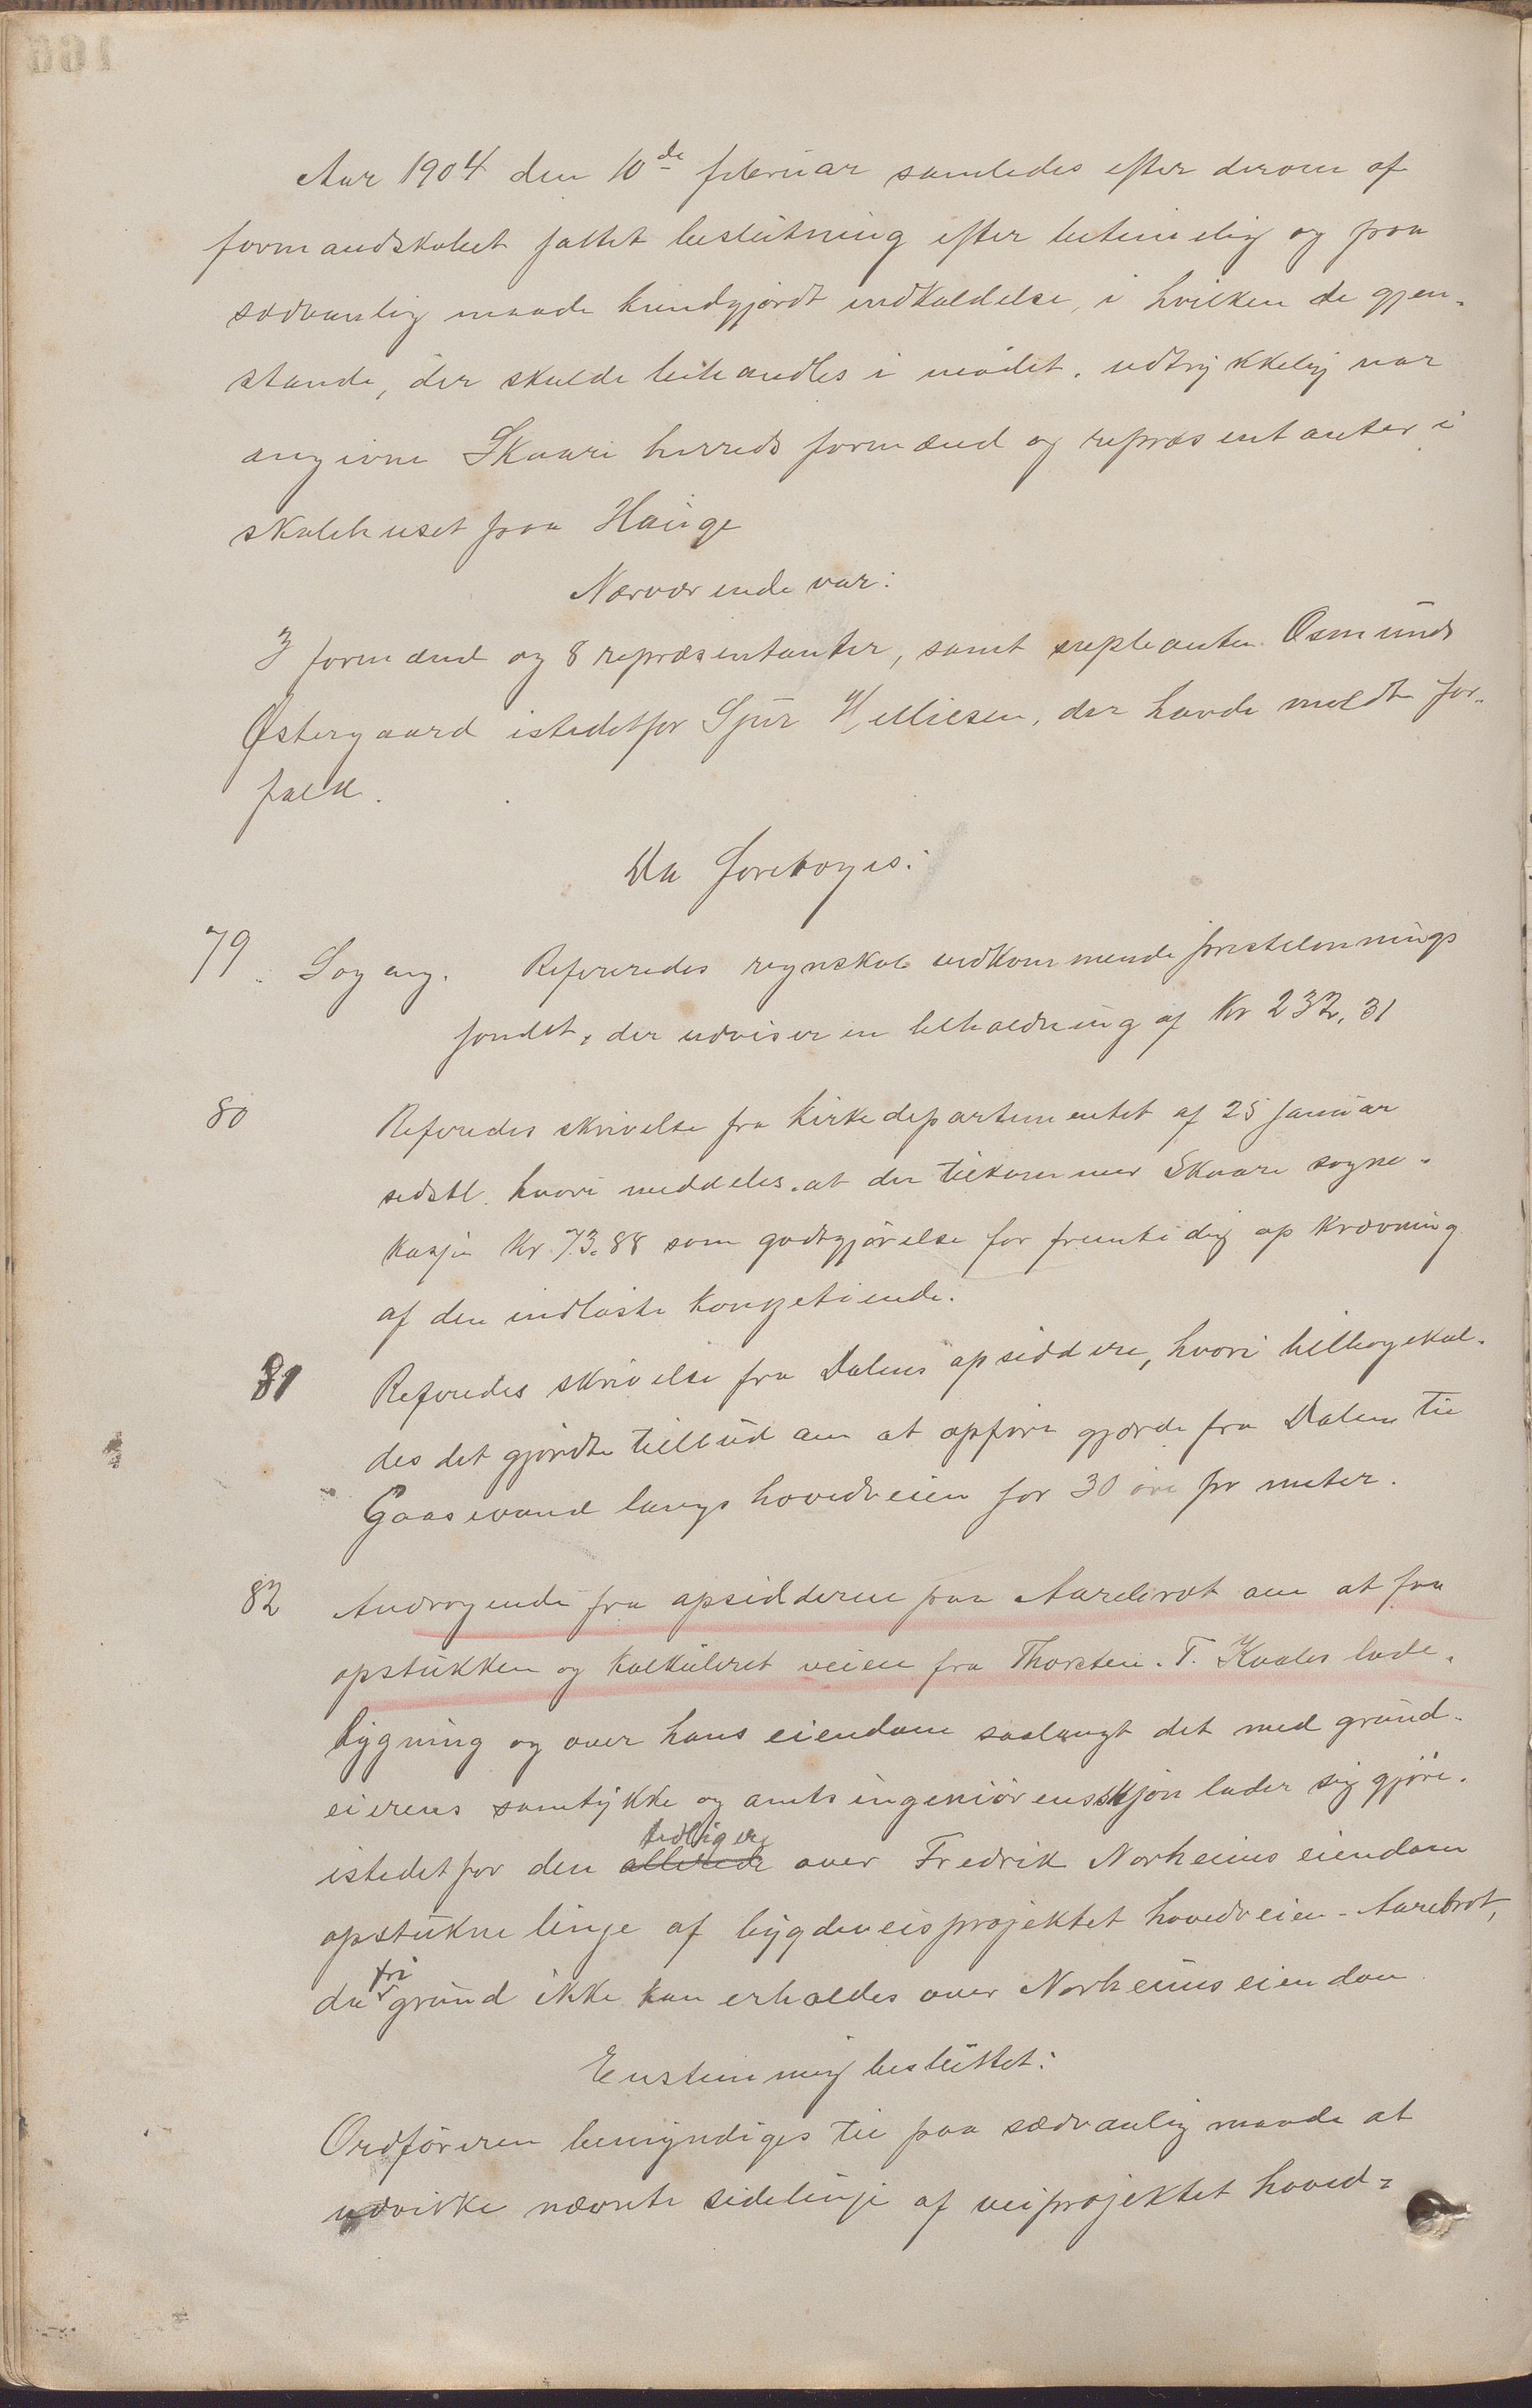 Aar 1904 den 10de februar samledes efter derom af
formandskabet fattet beslutning efter betimelig og paa
sædvanlig maade kundgjordt indkaldelse, i hvilken de gjen-
stande, der skulde behandles i mödet, udtrykkelig var
angivne Skaare herreds formænd og repræsentanter i
skolehuset paa Hauge
Nærværende var:
3 formænd og 8 repræsentanter, samt supleanten Osmund
Østergaard istedetfor Sjur Helliesen, der havde meldt for-
fald.
Da foretoges:
79. Sag ang. Refereredes regnskab vedkommende prestelønnings
fondet, der udviser en beholdning af Kr 232,31
80 Referedes skrivelse fra Kirkedepartementet af 25 januar
sidstl. hvori meddeles, at der tilkommer Skaare sogne-
kasse Kr. 73.88 som godtgjörelse for fremtidig opkrævning
af den indløste kongetiende.
81 Referedes skrivelse fra Dalens opsiddere, hvori tilbagekal-
des det gjordte tilbud om at opföre gjærde fra Dalen til
Gaasevand langs hovedveien for 30 öre pr meter.
82 Andragende fra opsidderne paa Aarebrot om at faa
opstukken og kalkuleret veien fra Thorsten. T. Kvales lade-
bygning og over hans eiendom saalangt det med grund-
eierens samtykke og amtsingeniörens skjön lader sig gjöre.
tidligere
istedetfor den allerede over Fredrik Norheims eiendom
opstukne linje af bygdeveisprojektet hovedveien - Aarebrot,
fri
da grund ikke kan erholdes over Norheims eiendom
Enstemmig besluttet:
Ordföreren bemyndiges til paa sædvanlig maade at
udvirke nævnte sidelinje af veiprojektet hoved-